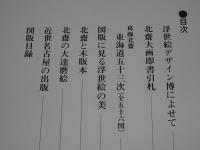 ●目次
浮世絵デザイン博によせて
北斎大画即書引札
葛飾北斎
東海道五十三次(全五十六図)
図版に見る浮世絵の美
北斎と木版本
北斎の大達磨絵
近世名古屋の出版
図版目録